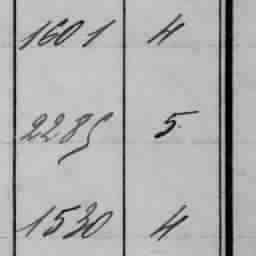 1601 4
2285 5
1530 4